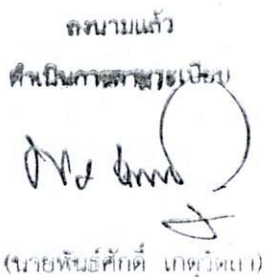 ลงนามแล้ว
ดำเนินการตามระเบียบ
(นายพันธ์ศักดิ์ เกตุวัตถา)